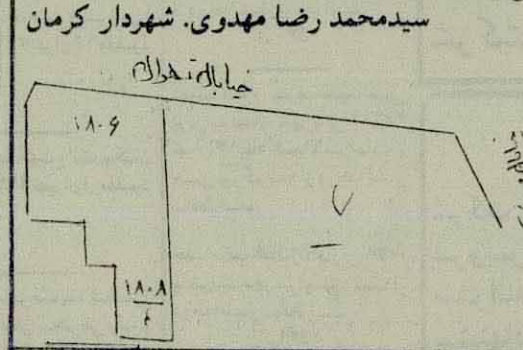 سیدمحمد رضا مهدوی. شهردار کرمان
خیابان تهران
۱۸۰۶
۷
۱۸۰۸